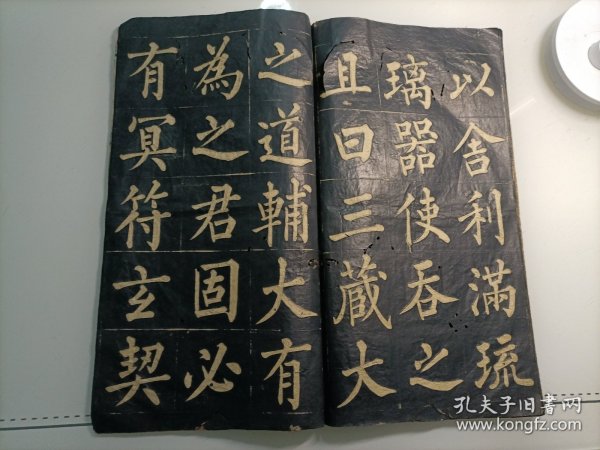 以舍利滿琉
璃器使吞之
且曰三藏大
之道輔大有
為之君固必
有冥符玄契
孔夫子旧书网
www.kongfz.com